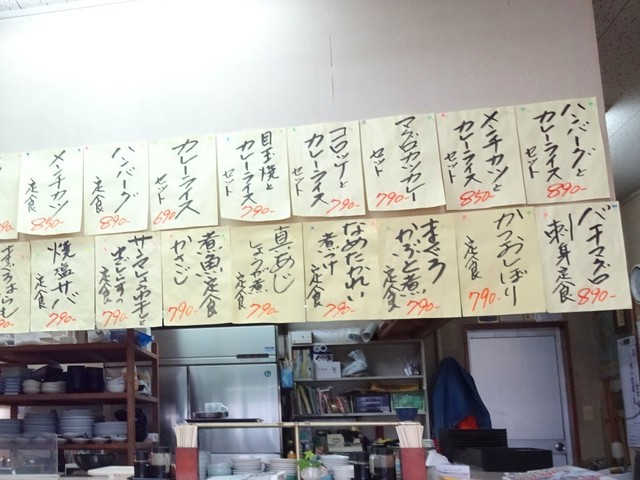 ハンバーグと
カレーライス
セット
890-
メンチカツと
カレーライス
セット
850-
マグロカツカレー
セット
790-
コロッケと
カレーライス
セット
790-
目玉焼と
カレーライス
セット
790-
カレーライス
セット
690
ハンバーグ
定食
890-
メンチカツ
定食
850-
バチマグロ
刺身定食
890-
かつおしぼり
定食
790-
まぐろ
かぶと煮
定食
790-
なめたかれい
煮つけ
790-
真あじ
しょうが煮
定食
790-
煮魚定食
かさご
790-
790-
焼塩サバ
定食
790-